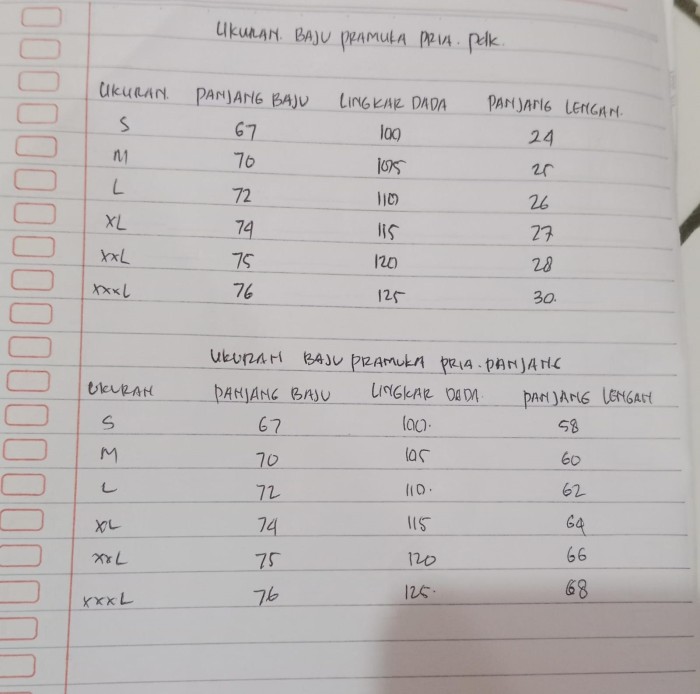 UKURAN. BAJU PRAMUKA PRIA. pdk.
UKURAN. PANJANG BAJU LINGKAR DADA PANJANG LENGAN.
S 67 100 24
M 70 105 25
L 72 110 26
XL 74 115 27
XXL 75 120 28
XXXL 76 125 30.
UKURAN BAJU PRAMUKA PRIA. PANJANG
UKURAN PANJANG BAJU LINGKAR DADA PANJANG LENGAN
S 67 100. 58
M 70 105 60
L 72 110. 62
XL 74 115 64
XXL 75 120 66
XXXL 76 125. 68